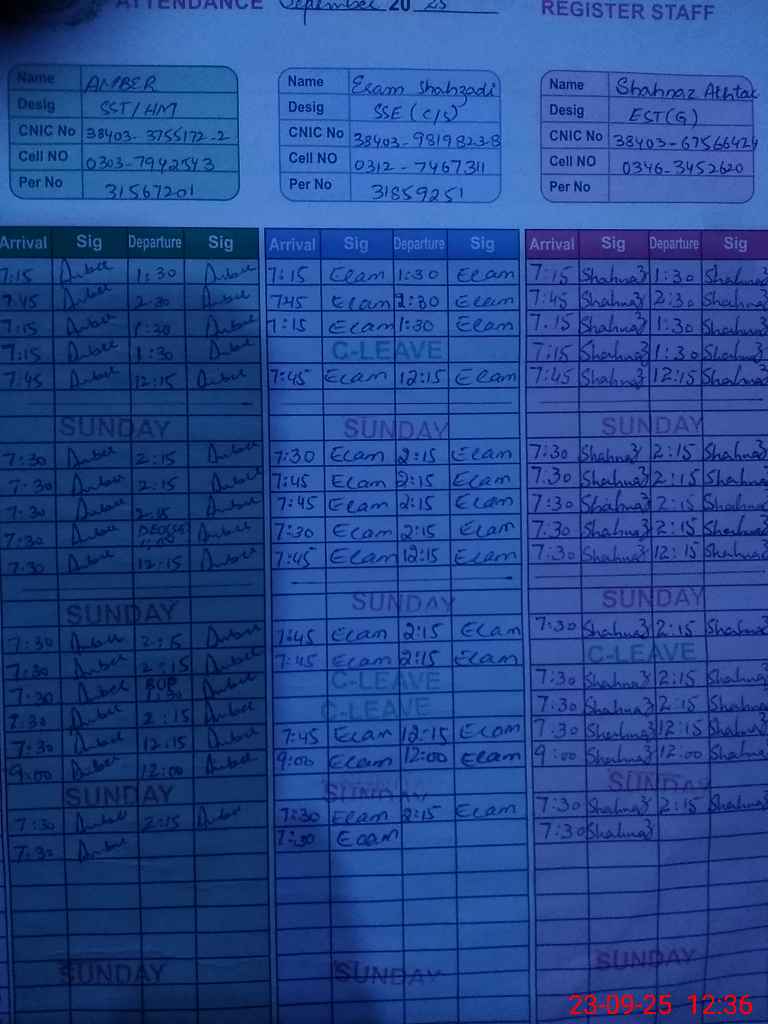 ATTENDANCE September 20 25 REGISTER STAFF
Name AMBER
Desig SST/HM
CNIC No 38403-3755172-2
Cell NO 0303-7942543
Per No 31567201
Name Ecam Shahzadi
Desig SSE (C/S)
CNIC No 38403-9819823-8
Cell NO 0312-7467311
Per No 31859251
Name Shahnaz Akhtar
Desig EST(G)
CNIC No 38403-6756642-4
Cell NO 0346-3452620
Per No
Arrival Sig Departure Sig Arrival Sig Departure Sig Arrival Sig Departure Sig
7:15 Amber 1:30 Amber 7:15 Ecam 1:30 Ecam 7:15 Shahnaz 1:30 Shahnaz
7:45 Amber 2:30 Amber 7:45 Ecam 2:30 Ecam 7:45 Shahnaz 2:30 Shahnaz
7:15 Amber 1:30 Amber 7:15 Ecam 1:30 Ecam 7:15 Shahnaz 1:30 Shahnaz
7:15 Amber 1:30 Amber C-LEAVE 7:15 Shahnaz 1:30 Shahnaz
7:45 Amber 12:15 Amber 7:45 Ecam 12:15 Ecam 7:45 Shahnaz 12:15 Shahnaz
SUNDAY SUNDAY SUNDAY
7:30 Amber 2:15 Amber 7:30 Ecam 2:15 Ecam 7:30 Shahnaz 2:15 Shahnaz
7:30 Amber 2:15 Amber 7:45 Ecam 2:15 Ecam 7:30 Shahnaz 2:15 Shahnaz
7:30 Amber 2:15 Amber 7:45 Ecam 2:15 Ecam 7:30 Shahnaz 2:15 Shahnaz
7:30 Amber Amber 7:30 Ecam 2:15 Ecam 7:30 Shahnaz 2:15 Shahnaz
7:30 Amber 12:15 Amber 7:45 Ecam 12:15 Ecam 7:30 Shahnaz 12:15 Shahnaz
SUNDAY SUNDAY SUNDAY
7:30 Amber 2:15 Amber 7:45 Ecam 2:15 Ecam 7:30 Shahnaz 2:15 Shahnaz
7:30 Amber 2:15 Amber 7:45 Ecam 2:15 Ecam C-LEAVE
7:30 Amber Amber C-LEAVE 7:30 Shahnaz 2:15 Shahnaz
7:30 Amber 2:15 Amber C-LEAVE 7:30 Shahnaz 2:15 Shahnaz
7:30 Amber 12:15 Amber 7:45 Ecam 12:15 Ecam 7:30 Shahnaz 12:15 Shahnaz
9:00 Amber 12:00 Amber 9:00 Ecam 12:00 Ecam 9:00 Shahnaz 12:00 Shahnaz
SUNDAY SUNDAY SUNDAY
7:30 Amber 2:15 Amber 7:30 Ecam 2:15 Ecam 7:30 Shahnaz 2:15 Shahnaz
7:30 Amber 7:30 Ecam 7:30 Shahnaz
SUNDAY SUNDAY SUNDAY
23-09-25 12:36